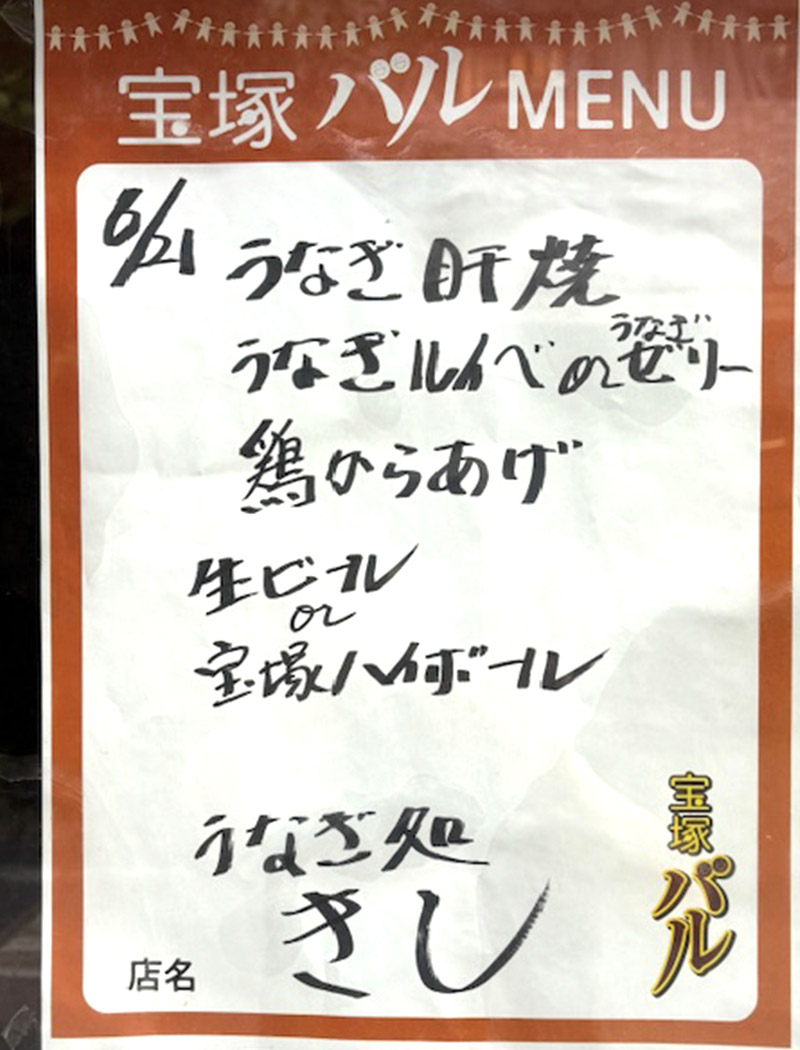 宝塚バルMENU
6/21
うなぎ肝焼
うなぎルイベorうなぎゼリー
鶏からあげ
生ビール
or
宝塚ハイボール
うなぎ処
きし
店名
宝塚
バル